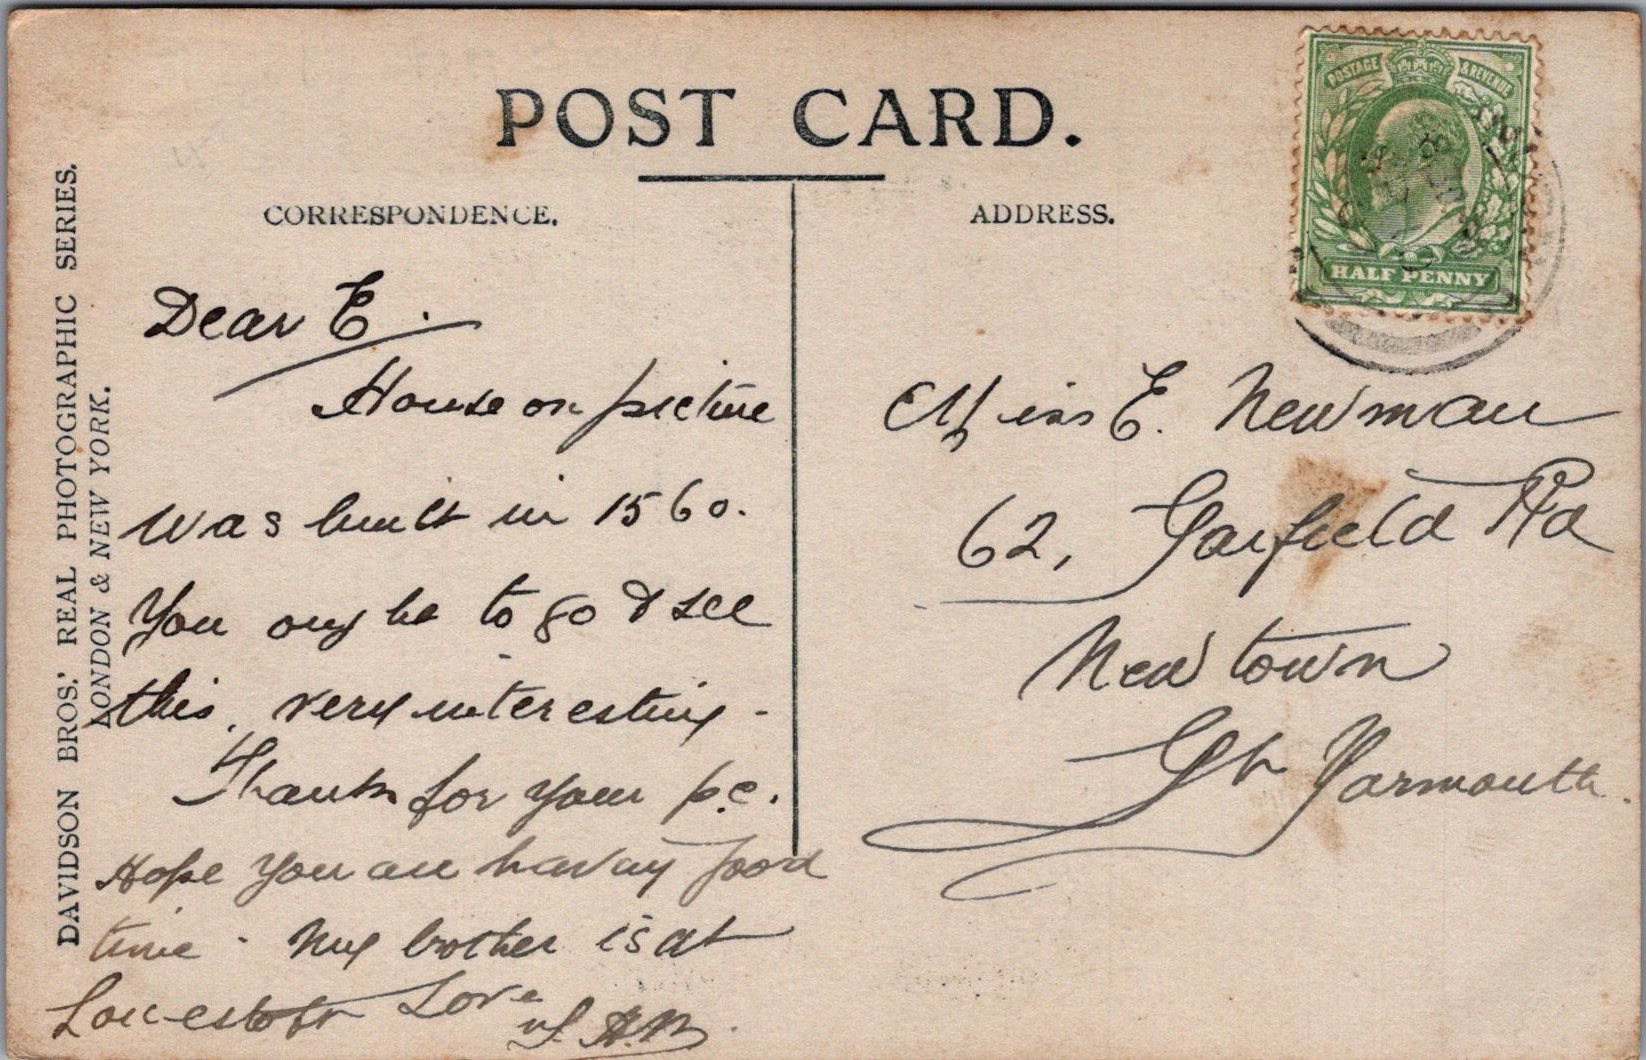 POST CARD.
CORRESPONDENCE.
ADDRESS.
DAVIDSON BROS.' REAL PHOTOGRAPHIC SERIES.
LONDON & NEW YORK.
POSTAGE & REVENUE
HALF PENNY
Dear E.
House on picture
was built in 1560.
You ought to go & see
this, very interesting -
Thanks for your p.c.
Hope you are having good
time. My brother is at
Lowestoft Love
Miss E. Newman
62, Garfield Rd
Newtown
Gt Yarmouth.